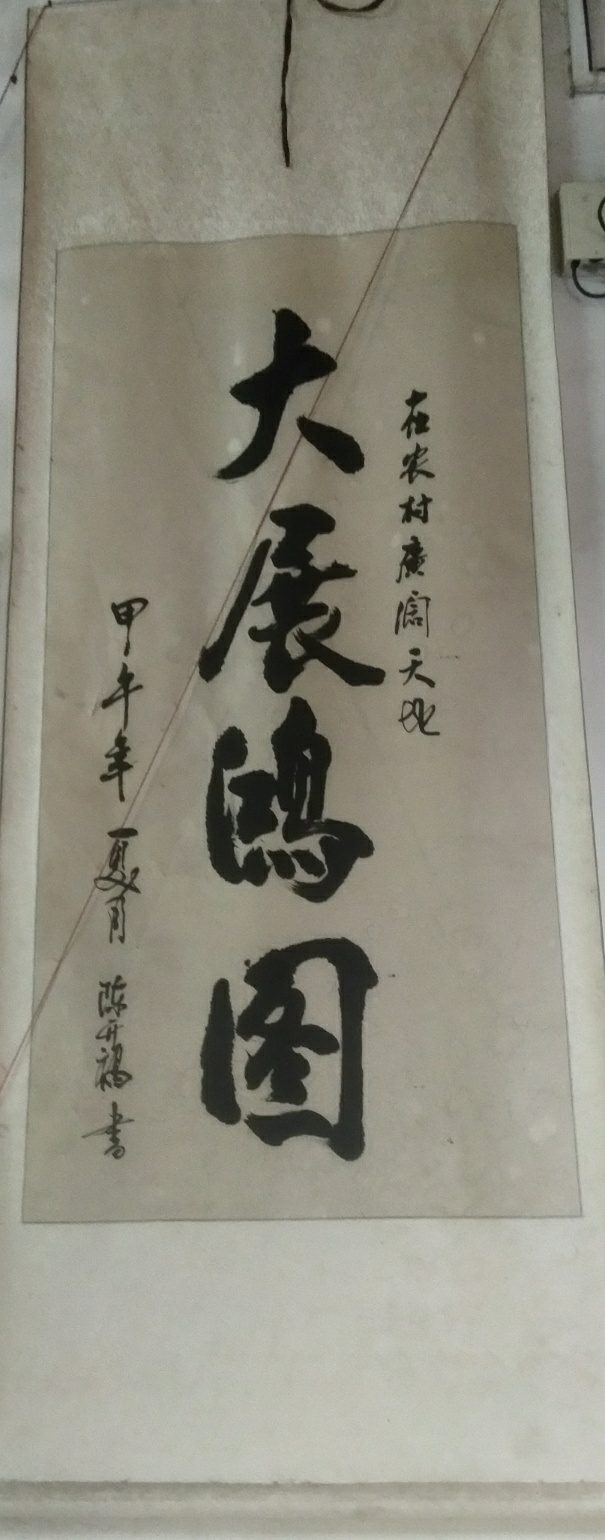 在农村廣阔天地
大展鸿图
甲午年夏月 陈开福书